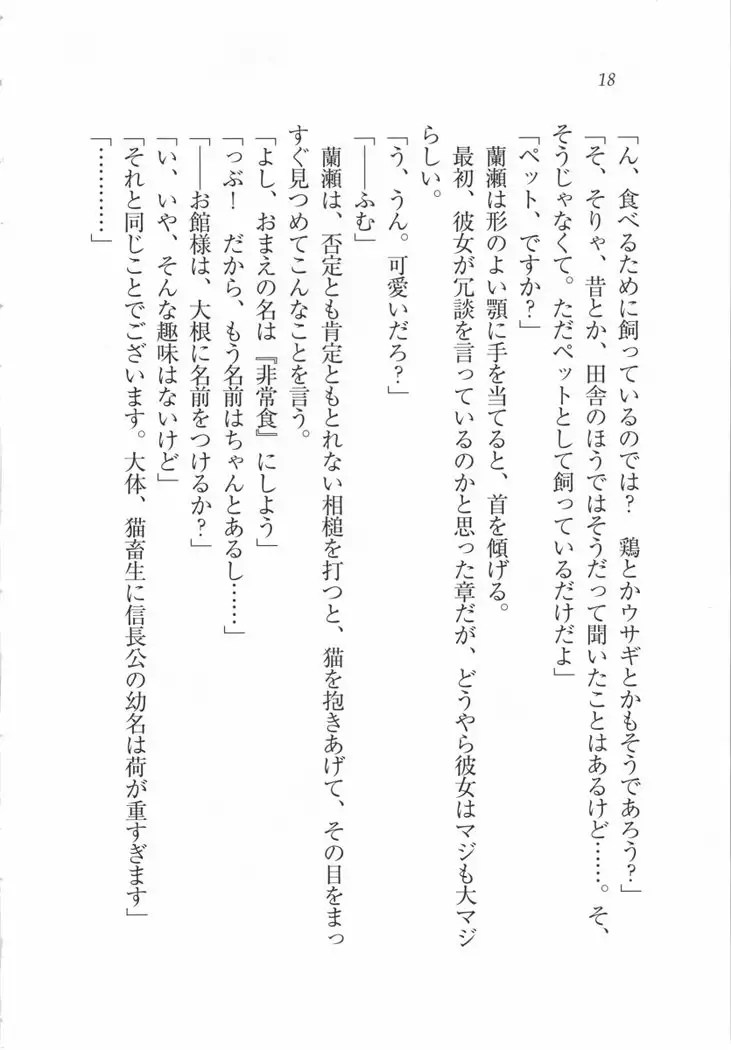 18
「ん、食べるために飼っているのでは？　鶏とかウサギとかもそうであろう？」
「そ、そりゃ、昔とか、田舎のほうではそうだって聞いたことはあるけど……。そ、
そうじゃなくて。ただペットとして飼っているだけだよ」
「ペット、ですか？」
　蘭瀬は形のよい顎に手を当てると、首を傾げる。
　最初、彼女が冗談を言っているのかと思った章だが、どうやら彼女はマジも大マジ
らしい。
「う、うん。可愛いだろ？」
「――ふむ」
　蘭瀬は、否定とも肯定ともとれない相槌を打つと、猫を抱きあげて、その目をまっ
すぐ見つめてこんなことを言う。
「よし、おまえの名は『非常食』にしよう」
「っぶ！　だから、もう名前はちゃんとあるし……」
「――お館様は、大根に名前をつけるか？」
「い、いや、そんな趣味はないけど」
「それと同じことでございます。大体、猫畜生に信長公の幼名は荷が重すぎます」
「…………」